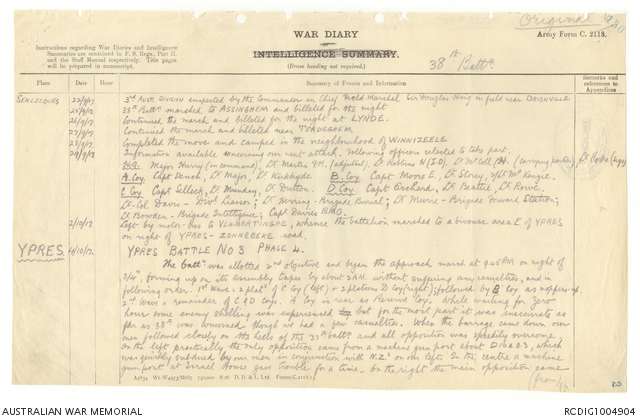 Original
WAR DIARY
or
INTELLIGENCE SUMMARY.
(Erase heading not required.)
38th Battn.
Army Form C. 2118.
Instructions regarding War Diaries and Intelligence
Summaries are contained in F. S. Regs., Part II.
and the Staff Manual respectively. Title pages
will be prepared in manuscript.
Place Date Hour Summary of Events and Information Remarks and references to Appendices
SENLECQUES 22/9/17 3rd Aust. Divn inspected by the Commander in Chief Field Marshal Sir Douglas Haig in field near
25/9/17 38th Battn marched to ASSINGHEM and billeted for the night
26/9/17 Continued the march and billeted for the night at LYNDE.
27/9/17 Continued the march and billeted near
Completed the move and camped in the neighbourhood of WINNIZEELE
Information available concerning our next attack. Following officers selected to take part.
H.Q. Major Henry (in command), Lt. (adjutant), Lt (I.O), Lt (carrying parties),
A Coy Capt Lt Major, Lt B Coy Capt Moore E, Lt Storey,
C Coy Capt Selleck, Lt Munday, Lt Dutton. D Coy Capt Orchard, Lt Beattie, Lt Rowe,
Lt-Col Davie - Divnl Liaison; Lt - Brigade Lt - Brigade Forward Station;
Lt Bowden - Brigade Intelligence; Capt Davies RMO.
2/10/17 Left by motor-bus to VLAMERTINGHE, whence the battalion marched to a bivouac area E of YPRES
on right of YPRES - ZONNEBEKE road.
YPRES 4/10/17. YPRES BATTLE No 3 PHASE 4.
The battn was allotted 2nd objective and began the approach march at 9.45 PM on night of
3/4th, forming up on its Assembly Tapes by about 3 AM without suffering any casualties, and in
following order. 1st Wave: 2 plat'ns of C Coy (left) & 2 platoons D Coy (right); followed by B Coy as moppers-up,
2nd Wave = remainder of C & D coys. A Coy in rear as Reserve Coy. While waiting for zero
hour some enemy shelling was experienced but for the most part it was inaccurate as
far as 38th was concerned though we had a few casualties. When the barrage came down our
men followed closely on the heels of the 37th battn and all opposition was speedily overcome.
On the left practically the only opposition came from a machine gun post about which
was quickly subdued by our men in conjunction with N.Z's on the left. In the centre a machine
gun post at Israel House gave trouble for a time. On the right the main opposition came
D. D. & L. Ltd.
AUSTRALIAN WAR MEMORIAL
RCDIG1004904